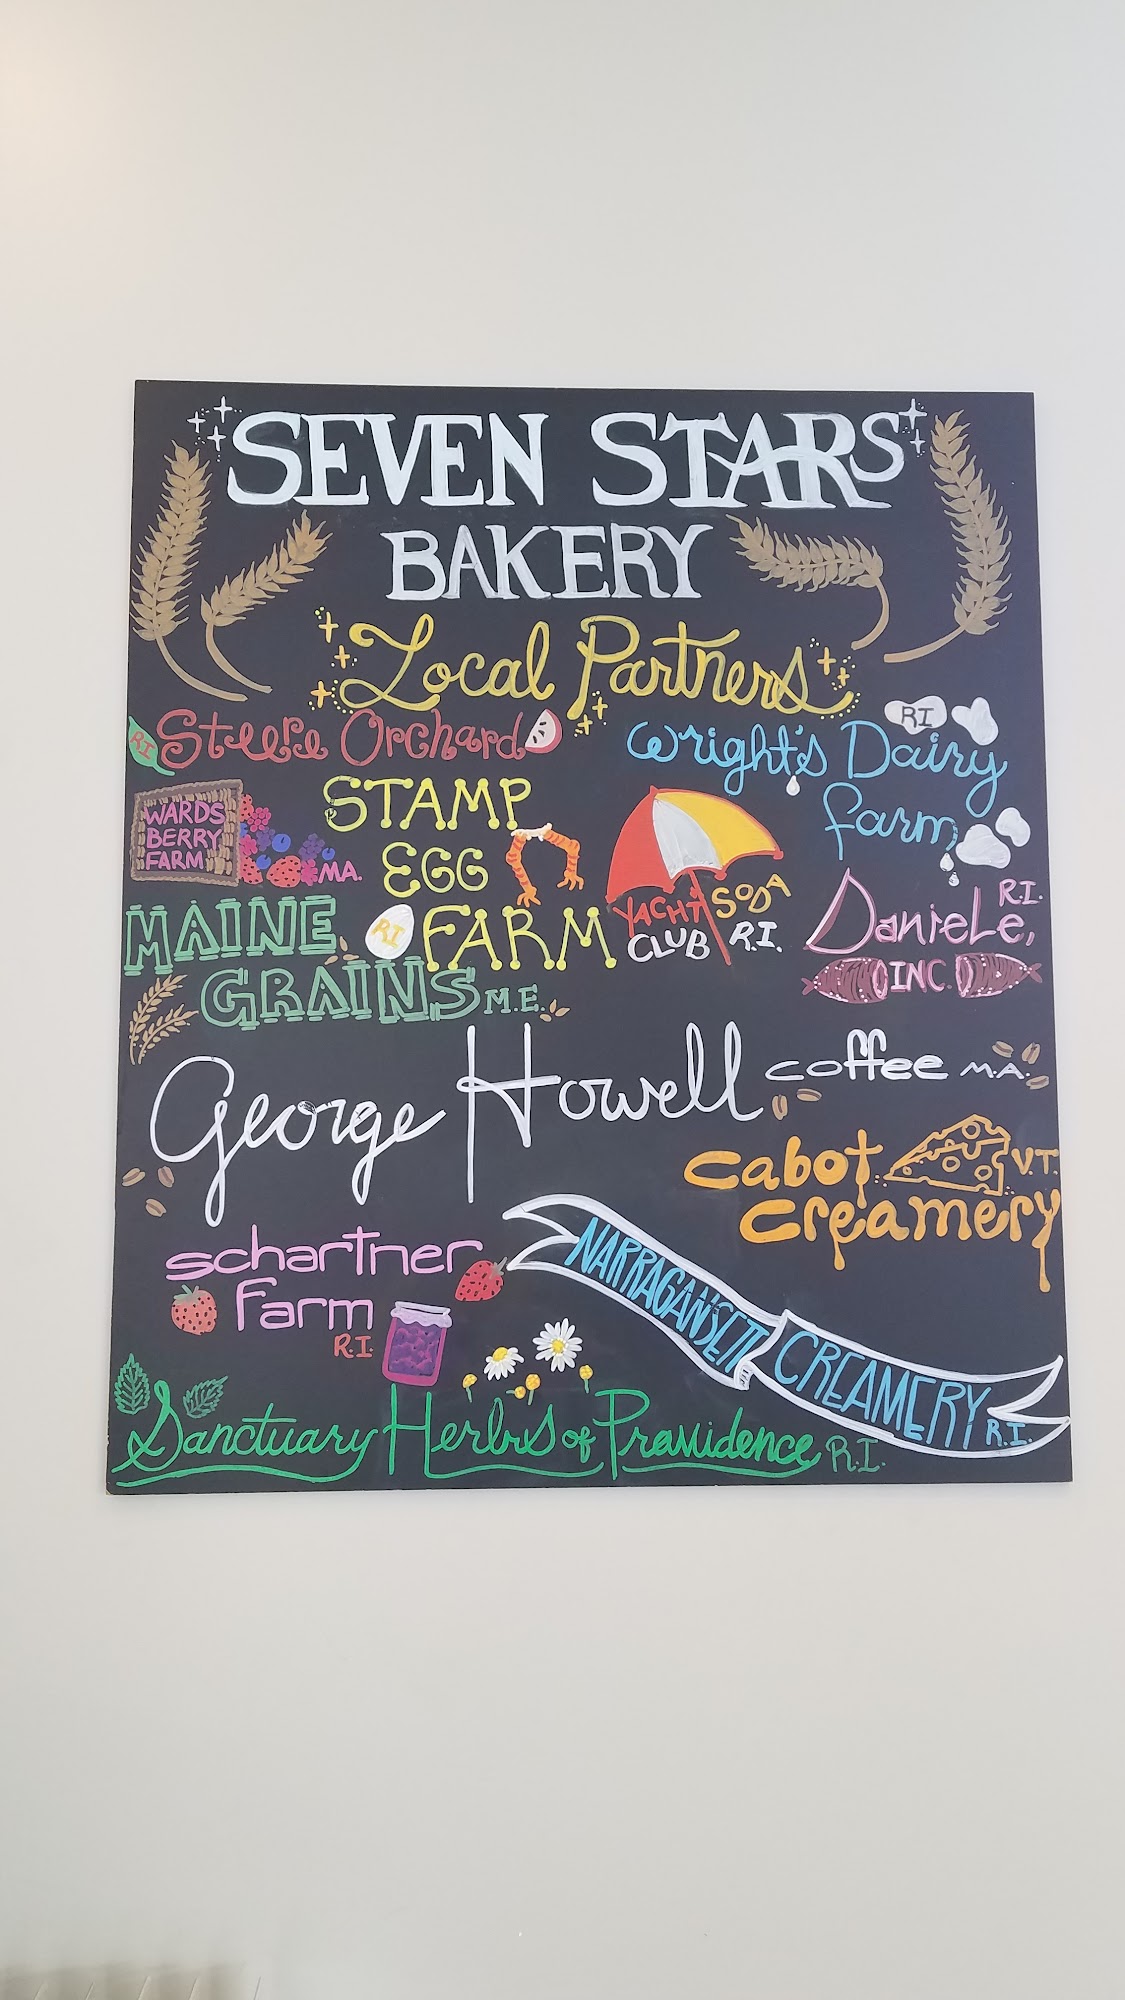 SEVEN STARS
BAKERY
Local Partners
RI Steere Orchard
RI
Wright's Dairy
farm
WARDS
BERRY
FARM
MA.
STAMP
EGG
RI FARM
YACHT SODA
CLUB R.I.
R.I.
DanieLe,
INC.
MAINE
GRAINS M.E.
George Howell coffee M.A.
cabot V.T.
creamery
schartner
Farm
R.I.
NARRAGANSETT CREAMERY R.I.
Sanctuary Herbs of Providence R.I.